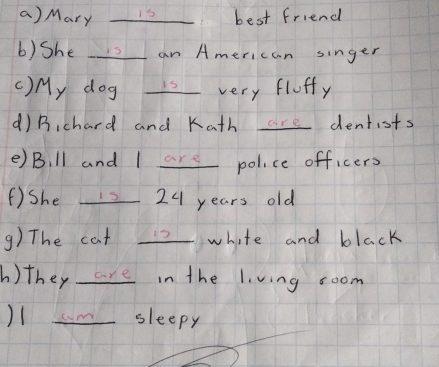 a) Mary is best friend
b) She is an American singer
c) My dog is very fluffy
d) Richard and Kath are dentists
e) Bill and I are police officers
f) She is 24 years old
g) The cat is white and black
h) They are in the living room
) I am sleepy